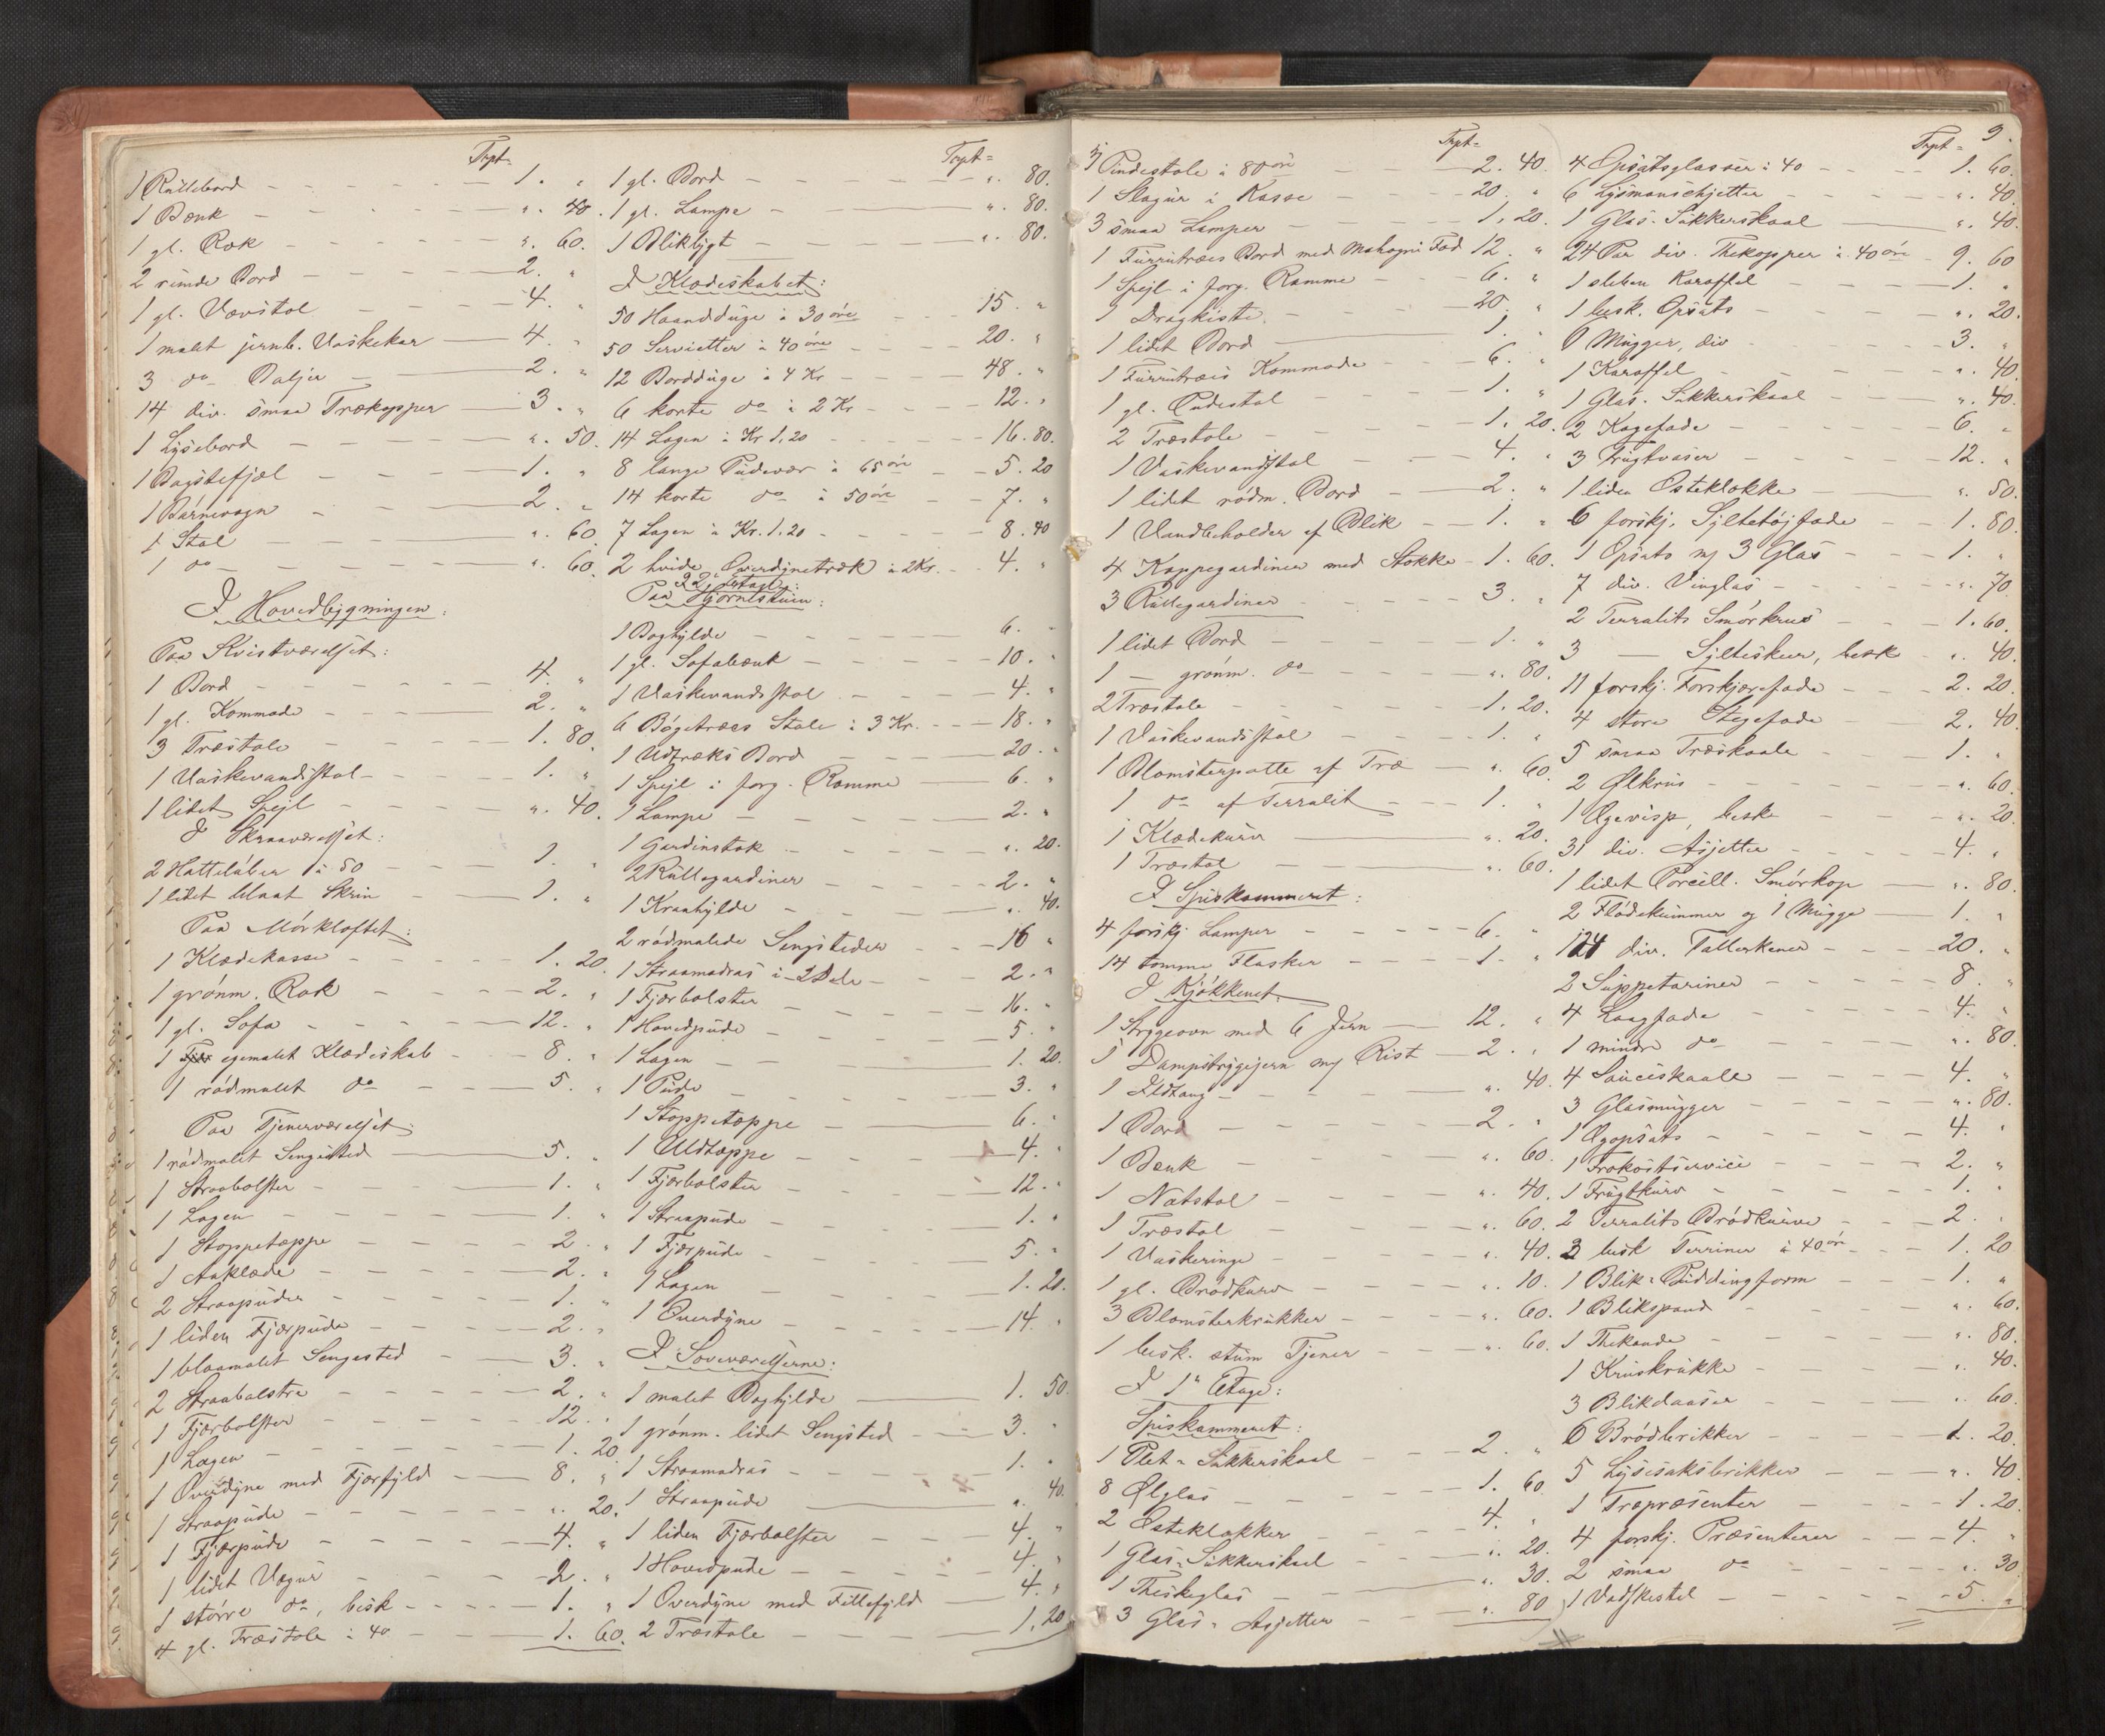 Txpt=
1 Rullebord 1. "
1 Bænk ". 40.
1 gl. Rok ". 60.
2 runde Bord 2. "
1 gl. Vævstol 4. "
1 malet jernb. Vaskekar 4. "
3 do Baljer 2. "
14 div. smaa Trækopper 3. "
1 Lysebord ". 50.
1 Bagstefjæl 1. "
1 Barnevogn 2. "
1 Stol ". 60.
1 do ". 60.
I Hovedbygningen:
Paa Kvistværelset:
1 Bord 4. "
1 gl. Kommode 2. "
3 Træstole 1. 80.
1 Vaskevandsstol 1. "
1 lidet Speil ". 40.
I Skraaværelset:
2 Hatteløber à 50 1. "
1 lidet blaat Skrin 1. "
Paa Mørkloftet:
1 Klædekasse 1. 20.
1 grønm. Rok 2. "
1 gl. Sofa 12. "
1 egemalet Klædeskab 8. "
1 rødmalet do 5. "
Paa Tjenerværelset:
1 rødmalet Sengested 5. "
1 Straabolster 1. "
1 Lagen 1. "
1 Stoppetæppe 2. "
1 Aaklæde 2. "
2 Straapuder 1. "
1 liden Fjærpude 2. "
1 blaamalet Sengested 3. "
2 Straabolstre 2. "
1 Fjærbolster 12. "
1 Lagen 1. 20.
1 Overdyne med Fjærfyld 8. "
1 Straapude ". 20.
1 Fjærpude 4. "
1 lidet Vægur 2. "
1 større do, besk 1. "
4 gl. Træstole à 40 1. 60.
Txpt=
1 gl. Bord ". 80.
1 gl. Lampe ". 80.
1 Bliklygt ". 80.
I Klædeskabet:
50 Haandduge à 30 øre 15. "
50 Servietter à 40 øre 20. "
12 Bordduge à 4 Kr 48. "
6 korte do à 2 Kr 12. "
14 Lagen à Kr 1,20 16. 80.
8 lange Pudevær à 65 øre 5. 20
14 korte do à 50 øre 7. "
7 Lagen à Kr. 1.20 8. 40
2 hvide Overdynetræk à 2 Kr. 4. "
I 2. Etage:
Paa Hjørnestuen:
1 Boghylde 6. "
1 gl. Sofabænk 10. "
1 Vaskevandsstol 4. "
6 Bøgetræes Stole à 3 Kr. 18. "
1 Udtræks Bord 20. "
1 Spejl i forg. Ramme 6. "
1 Lampe 2. "
1 Gardinstok ". 20.
2 Rullegardiner 2. "
1 Kraahylde ". 40.
2 rødmalede Sengesteder 16 "
1 Straamadras i 2 Dele 2. "
1 Fjærbolster 16. "
1 Hovedpude 5. "
1 Lagen 1. 20.
1 Pude 3. "
1 Stoppetæppe 6. "
1 Uldtæppe 4. "
1 Fjærbolster 12. "
1 Straapude 1. "
1 Fjærpude 5. "
1 Lagen 1. 20.
1 Overdyne 14. "
I Soveværelserne:
1 malet Boghylde 1. 50.
1 grønm. lidet Sengested 3. "
1 Straamadras 1. "
1 Straapude ". 40.
1 liden Fjærbolster 4. "
1 Hovedpude 4. "
1 Overdyne med Fillefyld 4. "
2 Træstole 1. 20
Txpt=
3 Pindestole à 80 øre 2. 40.
1 Slagur i Kasse 20. "
3 smaa Lamper 1. 20.
1 Furrutræes Bord med Mahogni Fod 12. "
1 Spejl i forg. Ramme 6. "
1 Dragkiste 20. "
1 lidet Bord 1. "
1 Furrutræes Kommode 6. "
1 gl. Pudestol 1. "
2 Træstole 1. 20.
1 Vaskevandsstol 4. "
1 lidet rødm. Bord 2. "
1 Vandbeholder af Blik 1. "
4 Kappegardiner med Stokke 1. 60.
3 Rullegardiner 3. "
1 lidet Bord 1. "
1 — grønm. do ". 80.
2 Træstole 1. 20.
1 Vaskevandsstol 1. "
1 Blomsterpotte af Træ ". 60.
1 do af Terralit 1. "
1 Klædekurv ". 20.
1 Træstol ". 60.
I Spiskammeret:
4 forskj. Lamper 6. "
14 tomme Flasker 1. "
I Kjøkkenet:
1 Strygeovn med 6 Jern 12. "
1 Dampstrygejern m/ Rist 2. "
1 Ildtang ". 40.
1 Bord 2. "
1 Bænk ". 60.
1 Natstol ". 40.
1 Træstol ". 60.
1 Vaskeringe ". 40.
1 gl. Brødkurv ". 10.
3 Blomsterkrukker ". 60.
1 besk. stum Tjener ". 60.
I 1. Etage:
Spiskammeret:
1 Plet-Sukkerskaal 2. "
8 Ølglas 1. 60.
2 Osteklokker 4. "
1 Glas-Sukkerskaal ". 20.
1 Theskeglas ". 30.
3 Glas-Asjetter ". 80
Txpt= 9.
4 Opsatsglasser à 40 1. 60.
6 Lysmanschjetter ". 40.
1 Glas-Sukkerskaal ". 40.
24 Par div. Thekopper à 40 øre 9. 60
1 sleben Karaffel 1. "
1 besk. Opsats ". 20.
6 Mugger, div 3. "
1 Karaffel ". 40.
1 Glas-Sukkerskaal ". 40.
2 Kagefade 6. "
3 Frugtvaser 12. "
1 liden Osteklokke ". 50.
6 forskj. Syltetøjfade 1. 80.
1 Opsats m/ 3 Glas 1. "
7 div. Vinglas ". 70
2 Terralits Smørkrus 1. 60.
3 — Sylteskeer, besk ". 40.
11 forskj. Forskjærefade 2. 20.
4 store Stegefade 2. 40
5 smaa Træskaale 1. "
2 Ølkrus ". 60.
1 Ægevisp, besk ". 20.
31 div. Asjetter 4. "
1 lidet Porcell. Smørkop ". 80.
2 Flødekummer og 1 Mugge 1. "
124 div. Tallerkener 20. "
2 Suppetariner 8. "
4 Laagfade 4. "
1 mindre do ". 80.
4 Sauceskaale 4. "
3 Glasmugger ". 80.
1 Ægopsats 4. "
1 Frokostservice 2. "
1 Frugtkurv 1. "
2 Terralits Brødkurve 2. "
3 besk Terriner à 40 øre 1. 20
1 Blik-Puddingform 1. "
1 Blikspand ". 60.
1 Thekande ". 80.
1 Kruskrukke ". 40.
3 Blikdaaser ". 60.
6 Brødbrikker 1. 20.
5 Lysesaksbrikker ". 40.
1 Træpræsenter 1. 20.
4 forskj. Præsenterer 4. "
2 smaa do ". 30
1 Vadskestel 5. "